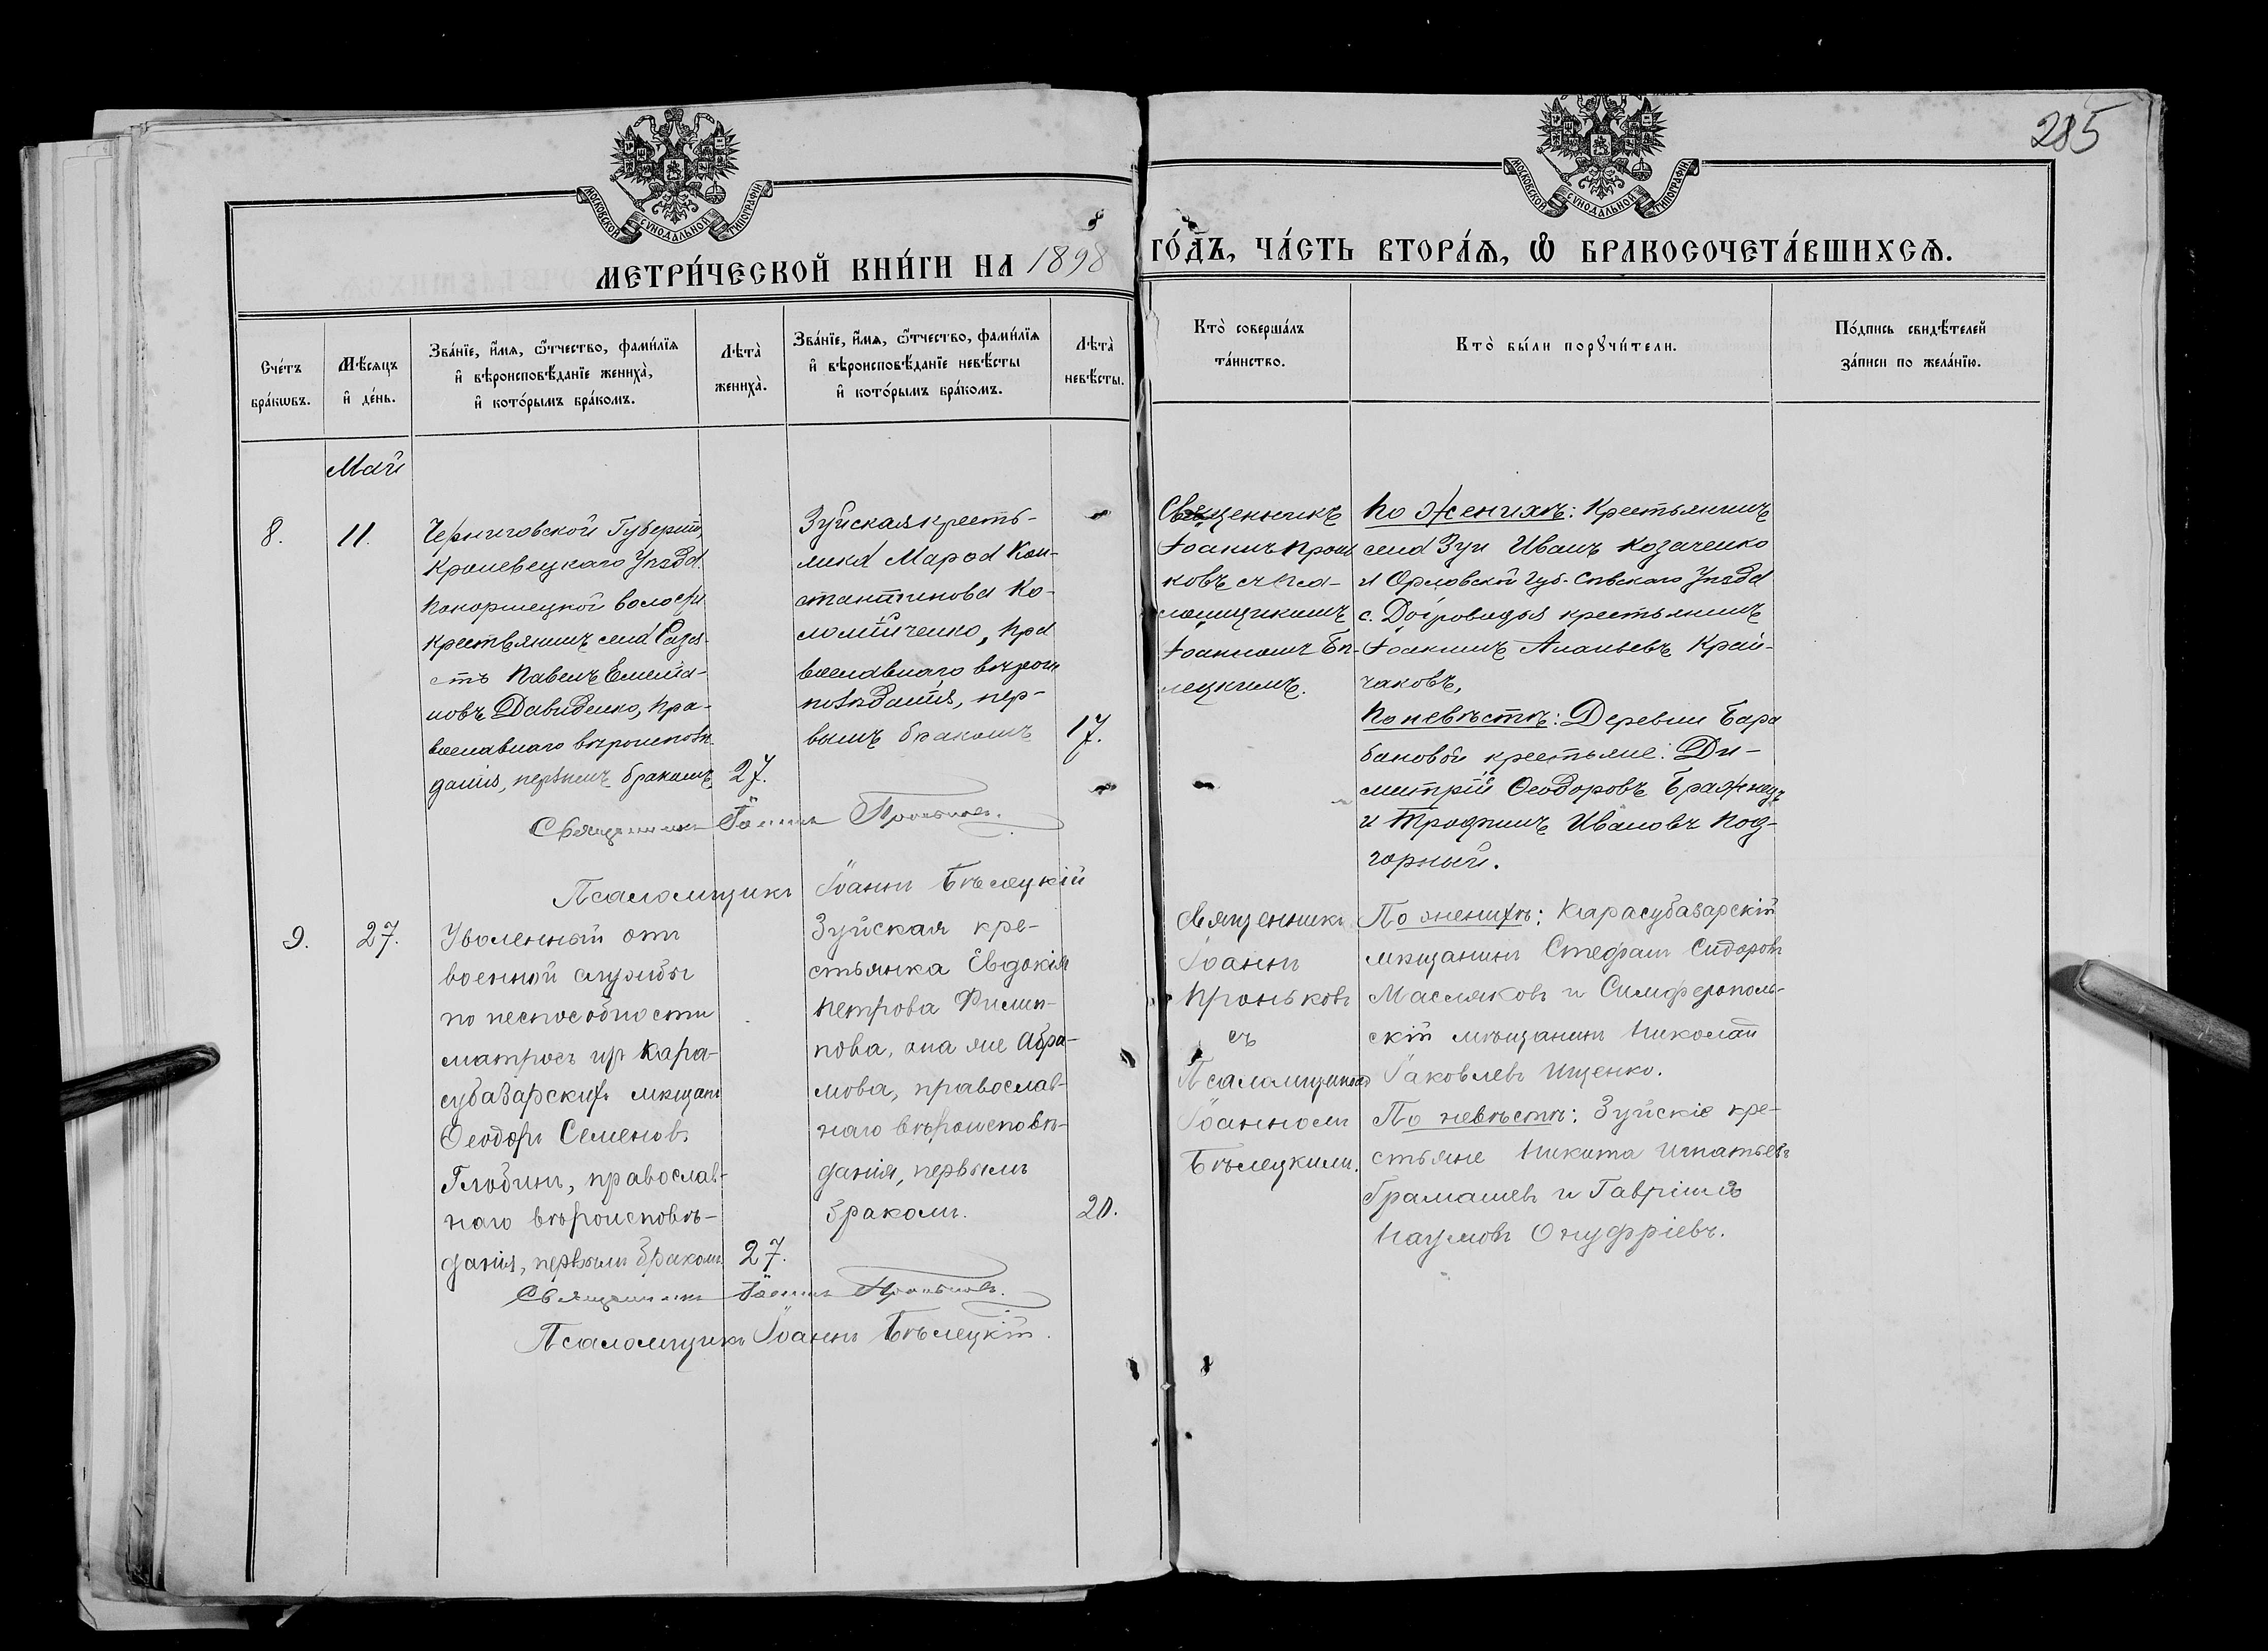 285
МОСКОВСКОЙ СѴНОДАЛЬНОЙ ТИПОГРАФІИ
МОСКОВСКОЙ СѴНОДАЛЬНОЙ ТИПОГРАФІИ
МЕТРИ́ЧЕСКОЙ КНИ́ГИ НА 1898 ГО́ДЪ, ЧА́СТЬ ВТОРА́Я, Ѡ БРАКОСОЧЕТА́ВШИХСЯ.
Сче́тъ
бра́кѡвъ.
Мѣ́сяцъ
и де́нь.
Зва́нїе, и́мя, ѻ҆́тчество, фами́лїя
и вѣроисповѣ́данїе жениха̀,
и кото́рымъ бра́комъ.
Лѣта̀
жениха̀.
Зва́нїе, и́мя, ѻ҆́тчество, фами́лїя
и вѣроисповѣ́данїе невѣ́сты
и кото́рымъ бра́комъ.
Лѣта̀
невѣ́сты.
Кто̀ соверша́лъ
та́инство.
Кто̀ бы́ли порꙋчи́тели.
По́дпись свидѣ́телей
за́писи по жела́нїю.
Май
8.
11.
Черниговской Губерніи,
Кролевецкаго Уѣзда
Понорницкой волости
крестьянинъ села
Павелъ Емелiа-
новъ Давиденко, пра-
вославнаго вѣроисповѣ-
данія, первымъ бракомъ
27.
Зуйская кресть-
янка Марѳа Кон-
стантинова Ко-
ломійченко, пра
вославнаго вѣроис
повѣданія, пер-
вымъ бракомъ
17.
Священникъ
Іоаннъ Пронь
ковъ съ Пса-
ломщикомъ
Іоанномъ Бѣ-
лецкимъ.
По женихѣ: Крестьянинъ
села Зуи Иванъ Козаченко
и Орловской Губ. Сѣвскаго Уѣзда
с. Доброводья крестьянинъ
Іоакимъ Ананьевъ Край-
чаковъ,
По невѣстѣ: Деревни Бара
бановой крестьяне: Ди-
митрій Ѳеодоровъ Бражнецъ
и Трофимъ Ивановъ Под-
горный.
Священникъ Іоаннъ Проньковъ.
Псаломщикъ Іоаннъ Бѣлецкій
9.
27.
Уволенный отъ
военной службы
по неспособности
матросъ изъ Кара-
субазарскихъ мѣщанъ
Ѳеодоръ Семеновъ
Глобинъ, православ-
наго вѣроисповѣ-
данія, первымъ бракомъ
27.
Зуйская кре-
стьянка Евдокія
Петрова Филип-
пова, она же Абра-
мова, православ-
наго вѣроисповѣ-
данія, первымъ
бракомъ.
20.
Священникъ
Іоаннъ
Проньковъ
съ
Псаломщикомъ
Іоанномъ
Бѣлецкимъ.
По женихѣ: Карасубазарскій
мѣщанинъ Стефанъ Сидоровъ
Масляковъ и Симферополь-
скій мѣщанинъ Николай
Іаковлевъ Ищенко.
По невѣстѣ: Зуйскіе кре-
стьяне Никита Игнатьевъ
Грамашевъ и Гавріилъ
Наумовъ Онуфріевъ.
Священникъ Іоаннъ Проньковъ.
Псаломщикъ Іоаннъ Бѣлецкій.